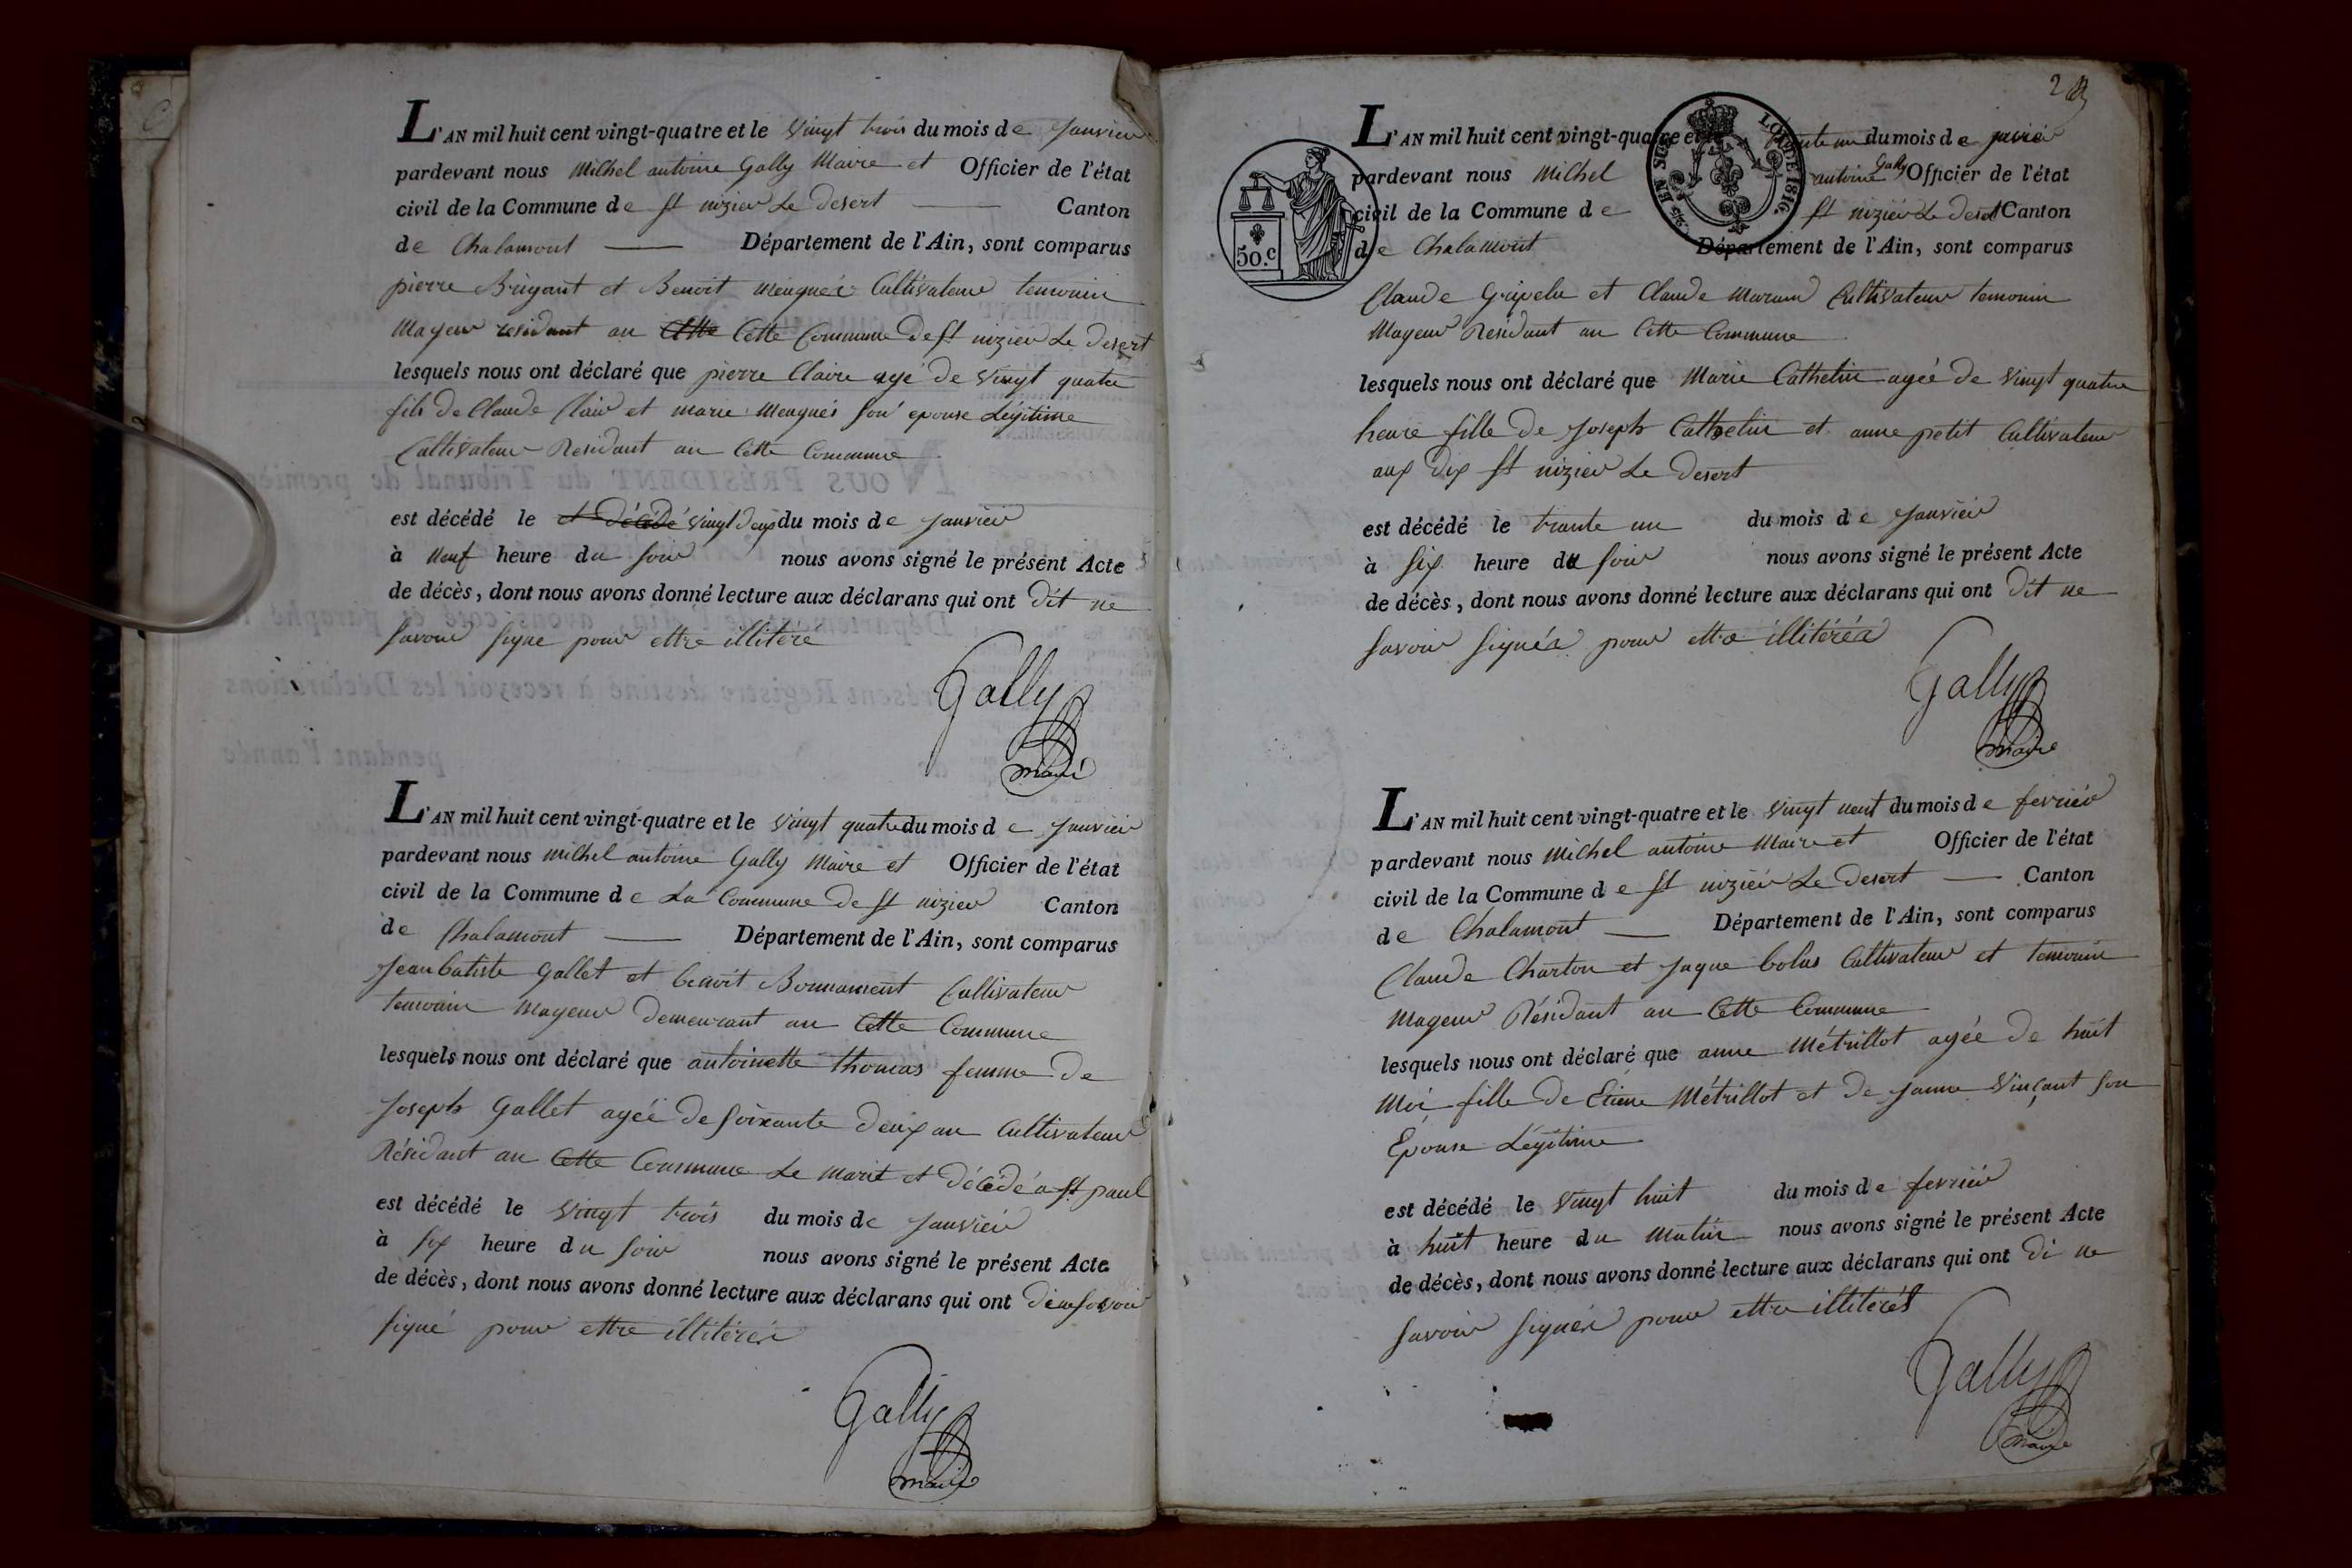 L'AN mil huit cent vingt-quatre et le vingt trois du mois de janvier
pardevant nous Michel antoine Gally Maire et Officier de l'état
civil de la Commune de st nizier Le desert Canton
de Chalamont Département de l'Ain, sont comparus
pierre Brigant et Benoit meugnés Cultivateur temouin
Mageur residant an Cette Commune De st nizier Le desert
lesquels nous ont déclaré que pierre Claire agé de Vingt quatre
fils de Claude Clair et marie Meugnés son epouse Légitime
Cultivateur Residant an Cette Commune
est décédé le et décédé vingt deux du mois de janvier
à neuf heure du soir nous avons signé le présent Acte
de décès, dont nous avons donné lecture aux déclarans qui ont Dit ne
savoir signe pour ettre illitéré
Gally
maire
L'AN mil huit cent vingt-quatre et le vingt quatre du mois de janvier
pardevant nous Michel antoine Gally Maire et Officier de l'état
civil de la Commune de La Commune de st nizier Canton
de Chalamont Département de l'Ain, sont comparus
Jean batiste Gallet et benoit Bonnament Cultivateur
temouin Mageur demeurant an Cette Commune
lesquels nous ont déclaré que antoinette thomas femme de
Joseph Gallet agéé de soixante deux an Cultivateur
Résidant an Cette Commune Le marit et décédé a st paul
est décédé le vingt trois du mois de janvier
à six heure du soir nous avons signé le présent Acte
de décès, dont nous avons donné lecture aux déclarans qui ont di ne savoir
signé pour ettre illitérés
Gally
maire
2
L'AN mil huit cent vingt-quatre et le trente un du mois de
pardevant nous Michel antoine Gally Officier de l'état
civil de la Commune de st nizier Le desert Canton
de Chalamont Département de l'Ain, sont comparus
EN SUS LOI DE 1816.
50.c
Claude Gripelu et Claude Cultivateur temouin
Mageur Residant an Cette Commune
lesquels nous ont déclaré que Marie Cathelin agéé de Vingt quatre
heure fille de Joseph Cathelin et anne petit Cultivateur
aux dix st nizier Le desert
est décédé le trante un du mois de janvier
à six heure du soir nous avons signé le présent Acte
de décès, dont nous avons donné lecture aux déclarans qui ont Dit ne
savoir signés pour ettre illitérés
Gally
maire
L'AN mil huit cent vingt-quatre et le vingt neuf du mois de fevriér
pardevant nous Michel antoine Maire et Officier de l'état
civil de la Commune de st niziér Le desert Canton
de Chalamont Département de l'Ain, sont comparus
Claude Charton et Jaque bolus Cultivateur et temouin
Mageur Résidant an Cette Commune
lesquels nous ont déclaré que anne Métrillot agéé de huit
Moi fille de Etiene Métrillot et de janne Vinçant son
Epouse Légitime
est décédé le vingt huit du mois de fevriér
à huit heure du Matin nous avons signé le présent Acte
de décès, dont nous avons donné lecture aux déclarans qui ont di ne
savoir signér pour ettre illitérés
Gally
maire